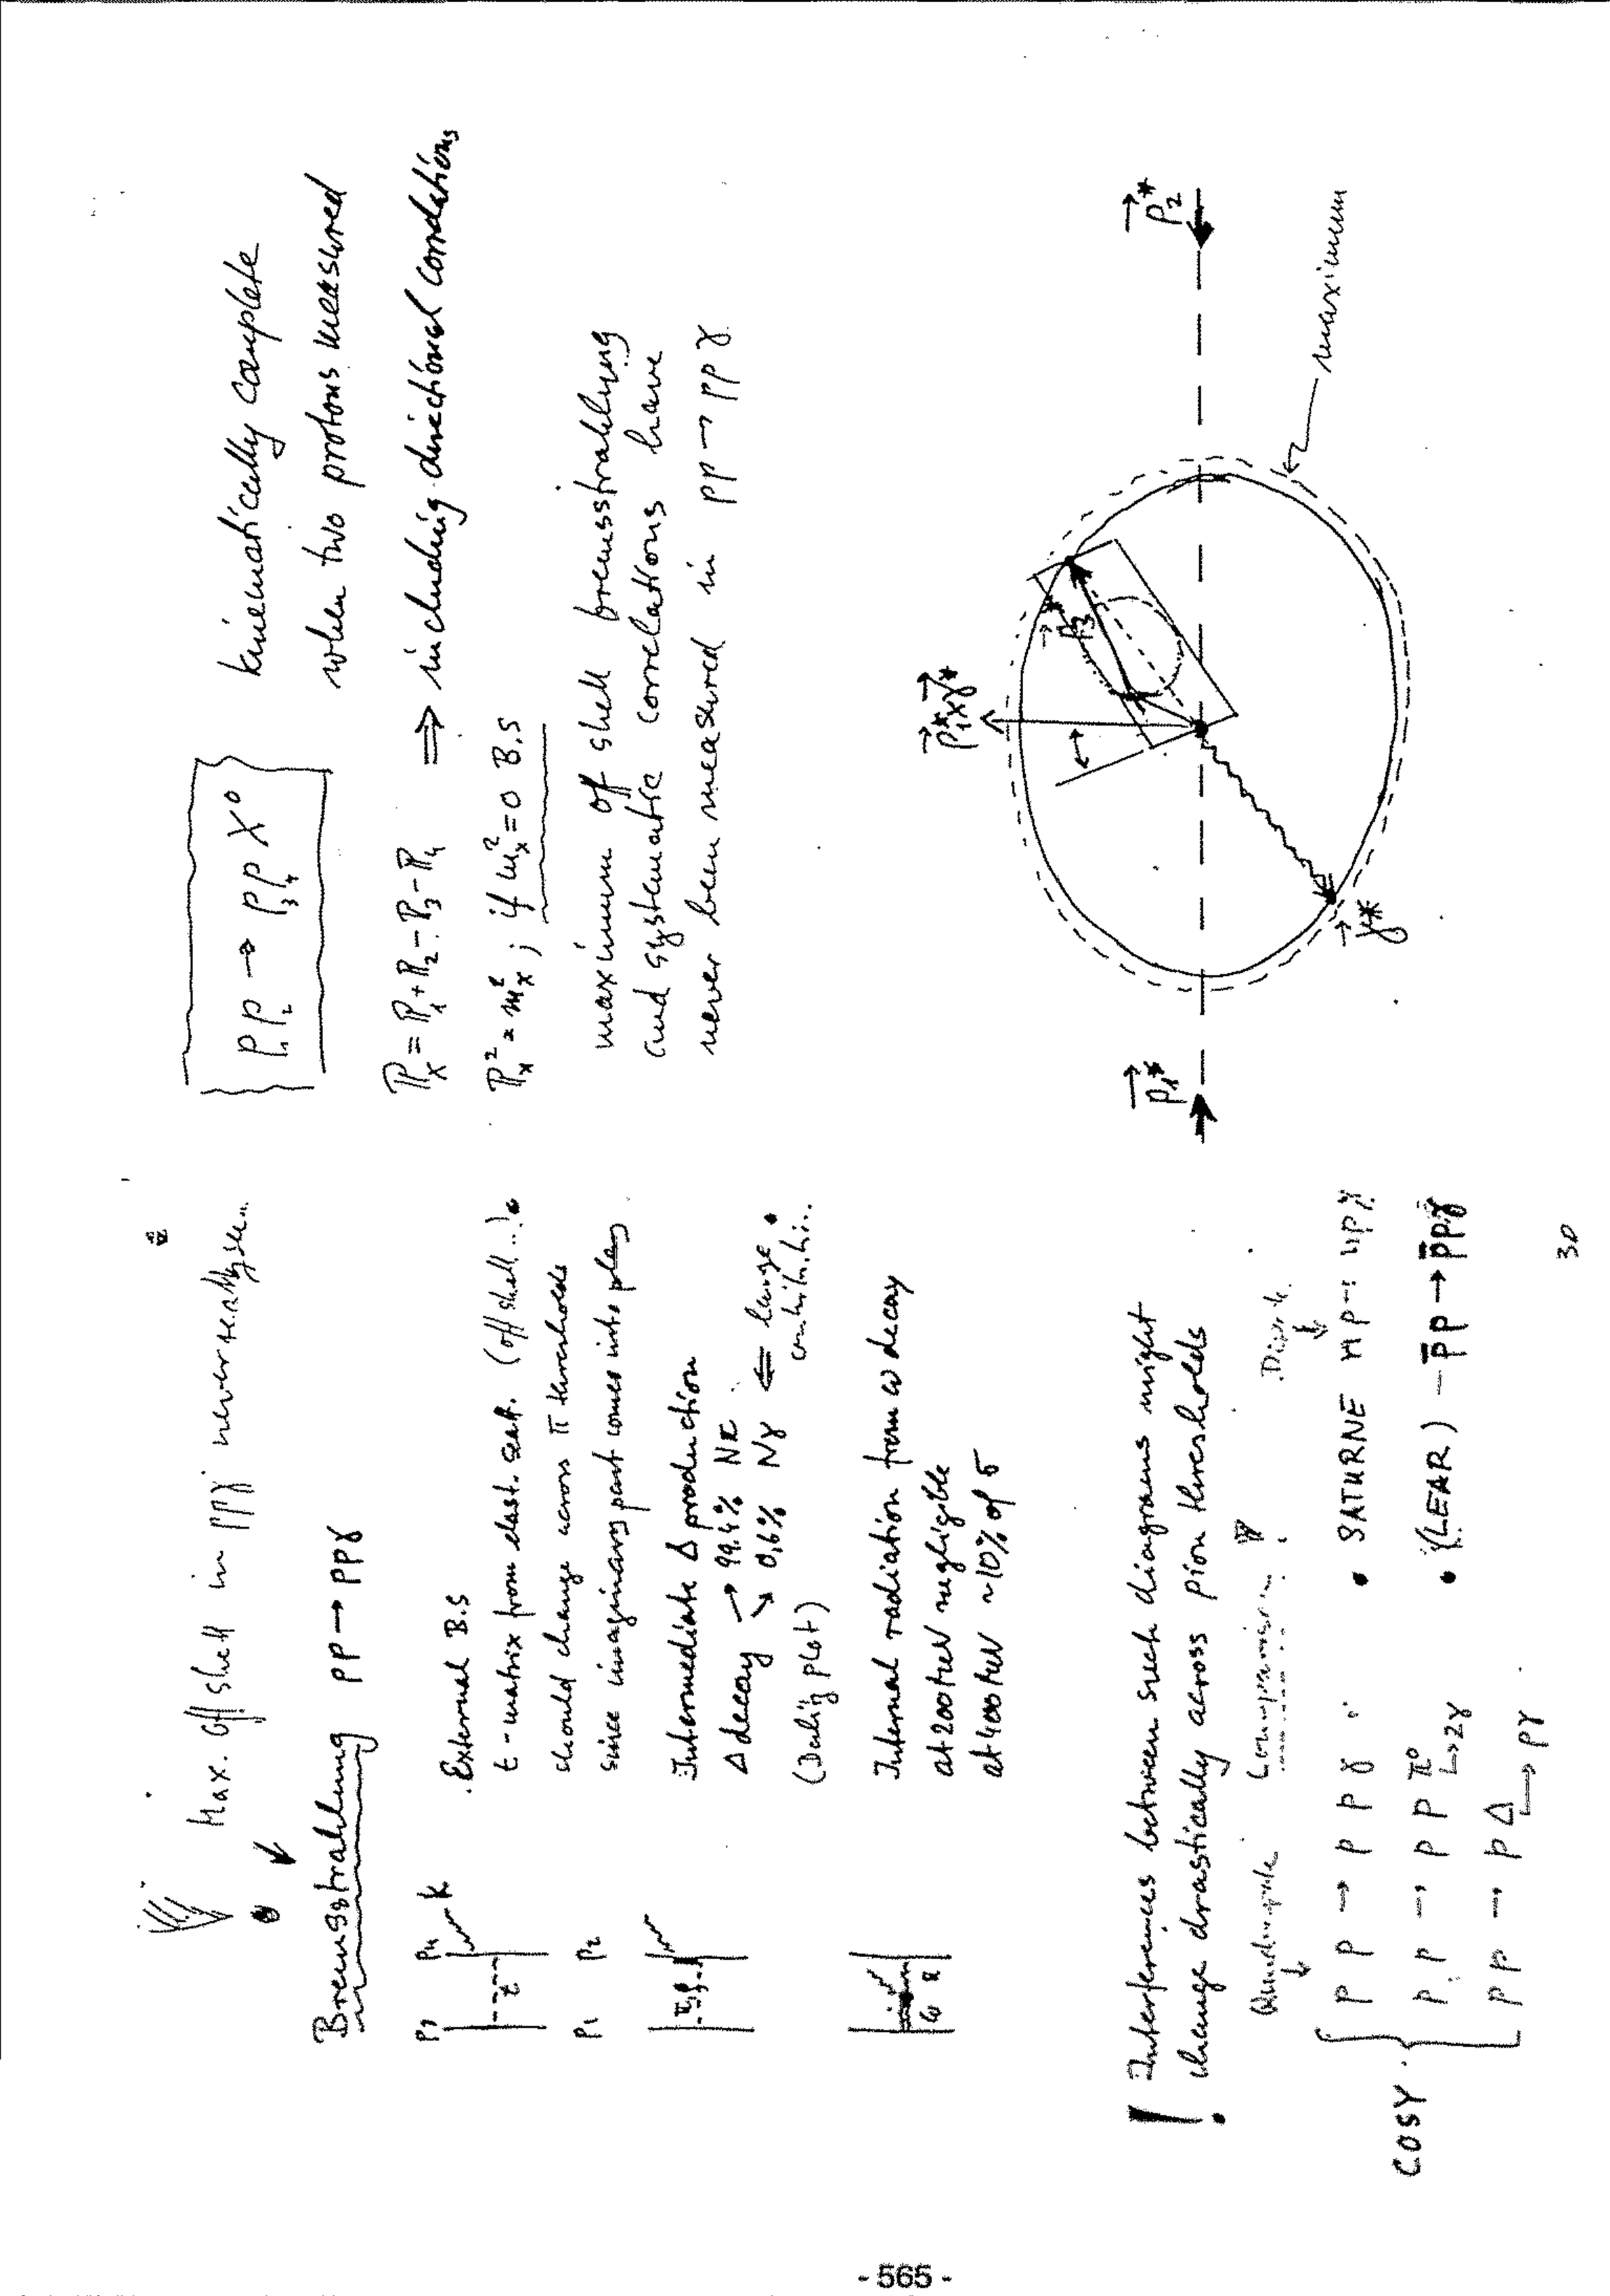 Max. off shell in ppγ never
Bremsstrahlung pp → ppγ
P3 P4 k
t
P1 P2
External B.S
t-matrix from elast. scatt. (off shell...)
should change across π thresholds
since imaginary part comes into play
Intermediate Δ production
Δ decay → 99.4% Nπ
↘ 0,6% Nγ ⇐ large
(Dalitz plot)
Internal radiation from ω decay
at 200 MeV negligible
at 400 MeV ~10% of σ
! Interferences between such diagrams might
change drastically across pion thresholds
COSY
p p → p p γ
p p → p p π⁰
↳ 2γ
p p → p Δ
↳ pγ
• SATURNE np → npγ
• (LEAR) – p̄p → p̄pγ
30
p₁p₂ → p₃p₄ X⁰
kinematically complete
when two protons measured
ℙx = ℙ₁ + ℙ₂ – ℙ₃ – ℙ₄ ⇒ including directional correlations
ℙx² = mx² ; if mx² = 0 B.S
maximum off shell bremsstrahlung
and systematic correlations have
never been measured in pp → ppγ
p₁* × γ*
p₃*
p₁*
p₂*
γ*
maximum
- 565 -